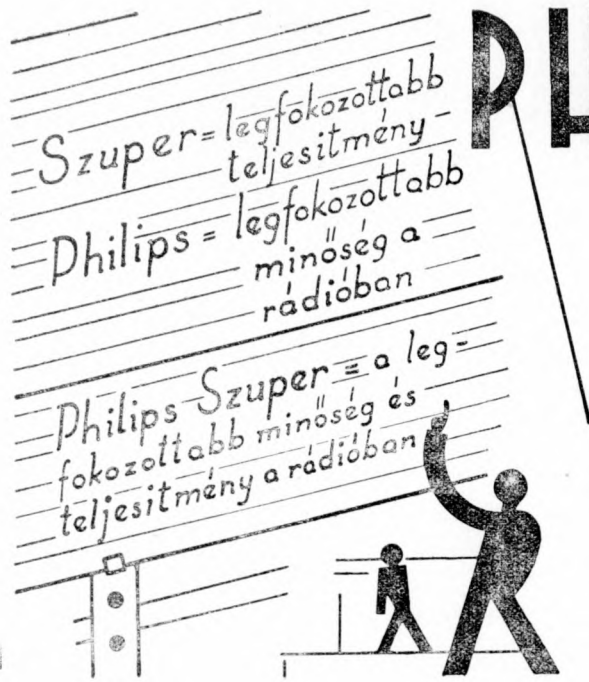 PH
Szuper = legfokozottabb
teljesitmény -
Philips = legfokozottabb
minőség a
rádióban
Philips Szuper = a leg-
fokozottabb minőség és
teljesitmény a rádióban